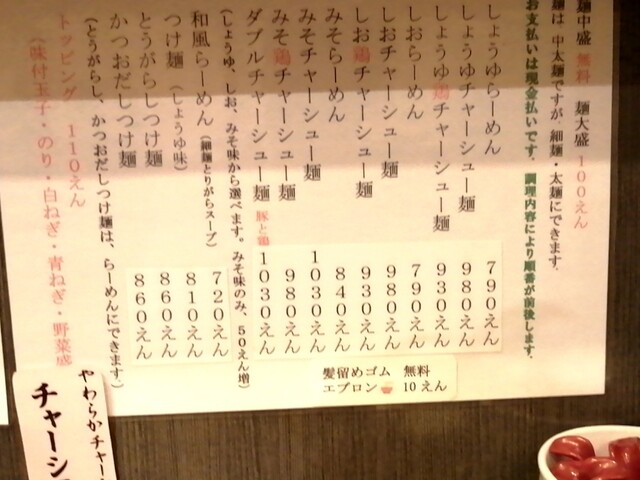 麺中盛 無料 麺大盛 100えん
麺は 中太麺ですが 細麺・太麺にできます。
お支払いは現金払いです。調理内容により順番が前後します。
しょうゆらーめん 790えん
しょうゆチャーシュー麺 980えん
しょうゆ鶏チャーシュー麺 930えん
しおらーめん 790えん
しおチャーシュー麺 980えん
しお鶏チャーシュー麺 930えん
みそらーめん 840えん
みそチャーシュー麺 1030えん
みそ鶏チャーシュー麺 980えん
ダブルチャーシュー麺 豚と鶏 1030えん
(しょうゆ、しお、みそ味から選べます。みそ味のみ、50えん増)
和風らーめん (細麺とりがらスープ) 720えん
つけ麺 (しょうゆ味) 810えん
とうがらしつけ麺 860えん
かつおだしつけ麺 860えん
(とうがらし、かつおだしつけ麺は、らーめんにできます)
トッピング 110えん
(味付玉子・のり・白ねぎ・青ねぎ・野菜盛
髪留めゴム 無料
エプロン 10えん
やわらかチャー
チャーシ